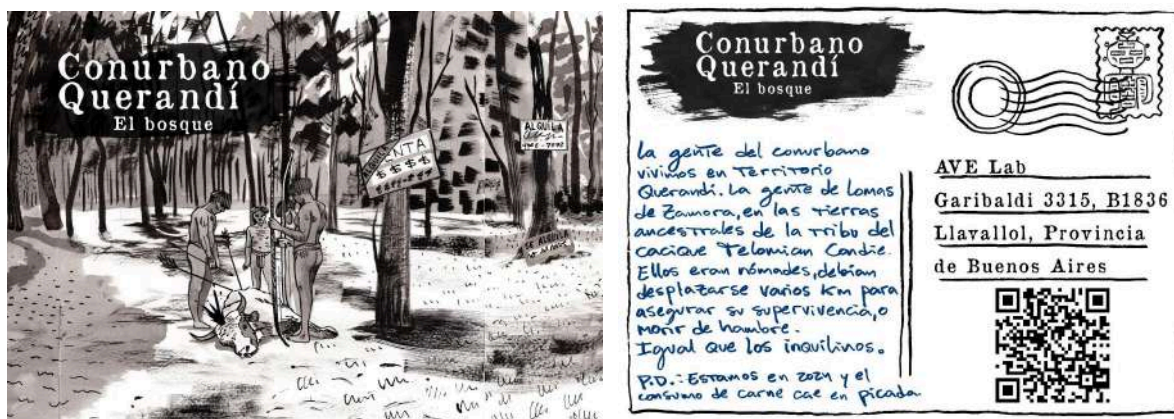 Conurbano
Querandí
El bosque
VENTA
$$$$
ALQUILA
SE ALQUILA
Conurbano
Querandí
El bosque
La gente del conurbano
vivimos en Territorio
Querandí. La gente de Lomas
de Zamora, en las tierras
ancestrales de la tribu del
cacique Telomian Condie.
Ellos eran nómades, debían
desplazarse varios km para
asegurar su supervivencia, o
morir de hambre.
Igual que los inquilinos.
P.D.: Estamos en 2024 y el
consumo de carne cae en picada
AVE Lab
Garibaldi 3315, B1836
Llavallol, Provincia
de Buenos Aires